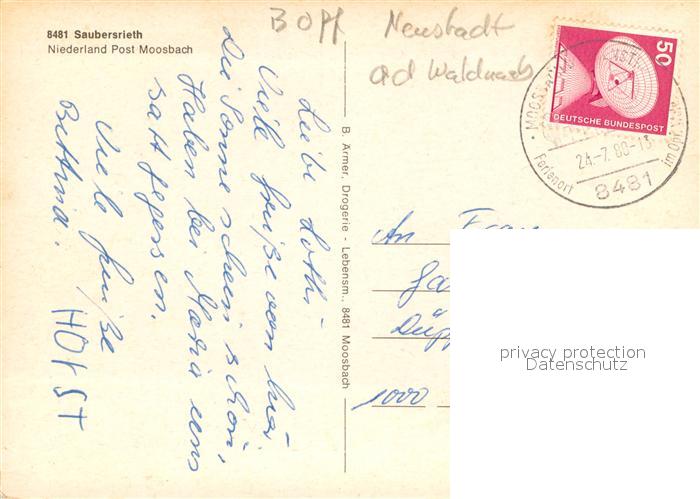 8481 Saubersrieth
Niederland Post Moosbach
BOPF
Neustadt
ad Waldnaab
50
DEUTSCHE BUNDESPOST
MOOSB
Ferienort
im Opf
24.-7.80-13
8481
Liebe Lothi
Viele Grüße von hier
Die Sonne scheint schön,
Haben bei Maria uns
satt gegessen.
Viele Grüße
Bettina.
HORST
B. Armer, Drogerie - Lebensm., 8481 Moosbach
An Frau
Ga
Düpp
1000
privacy protection
Datenschutz